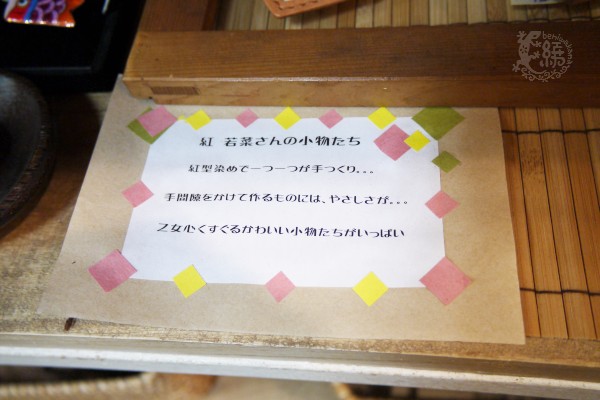 紅 若菜さんの小物たち
紅型染めで一つ一つが手つくり。。。
手間隙をかけて作るものには、やさしさが。。。
乙女心くすぐるかわいい小物たちがいっぱい